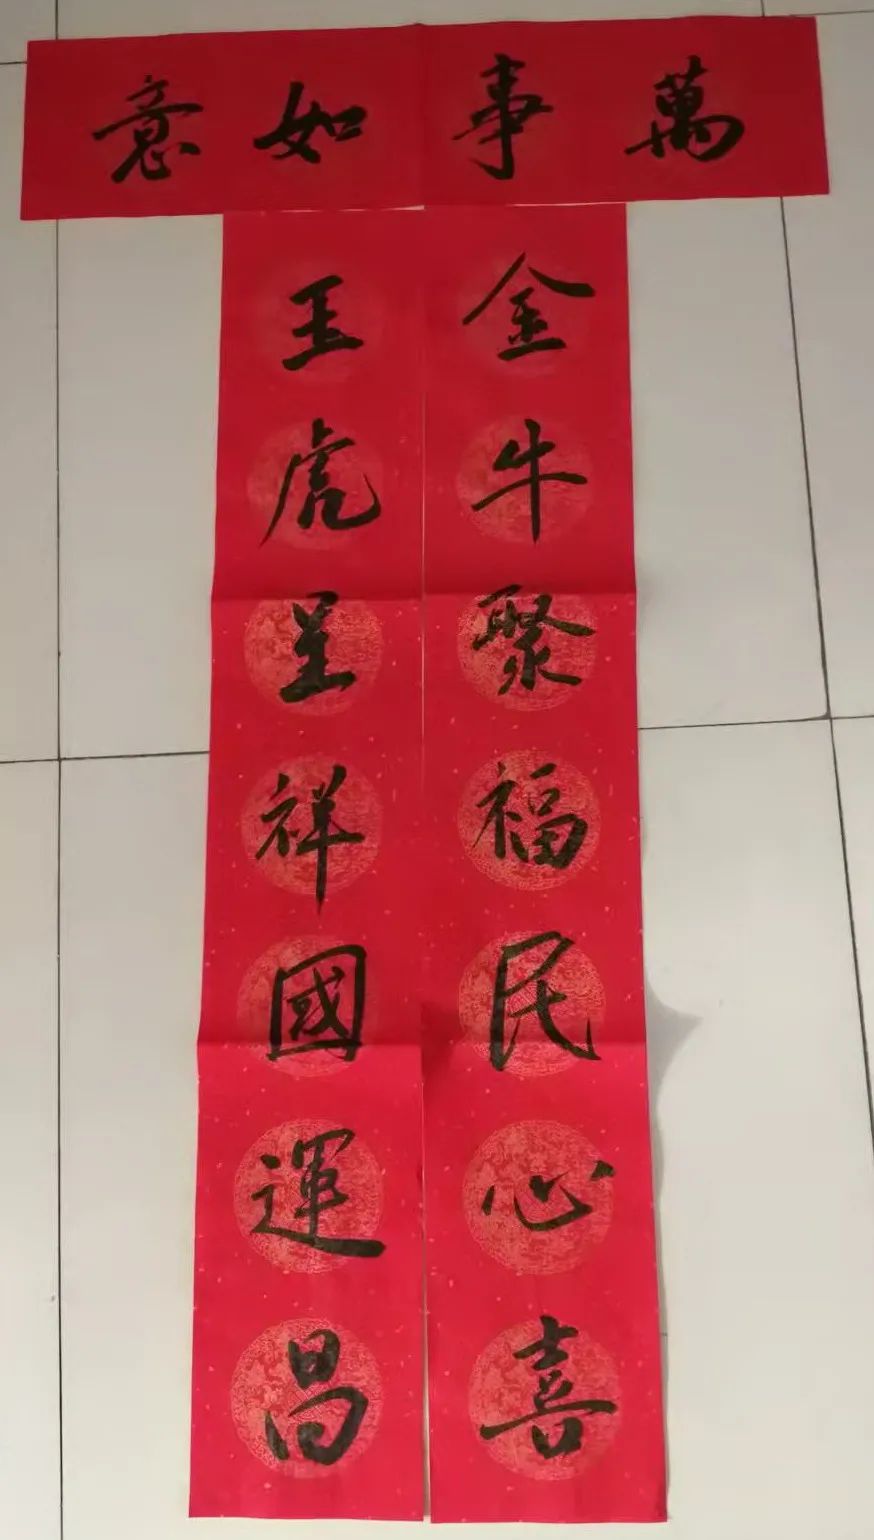 萬事如意
金牛聚福民心喜
玉虎呈祥國運昌